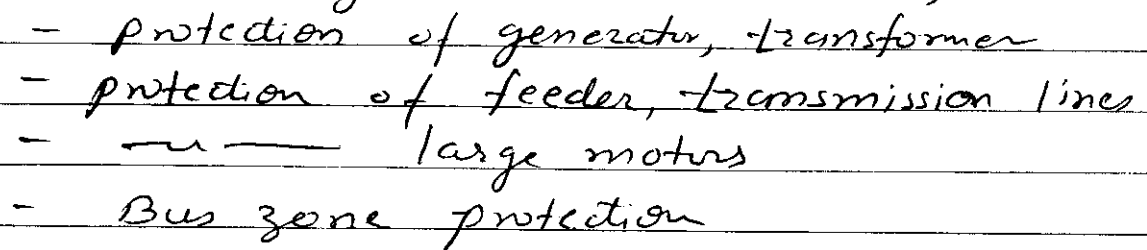 - protection of generator, transformer
- protection of feeder, transmission lines
- —〃— large motors
- Bus zone protection